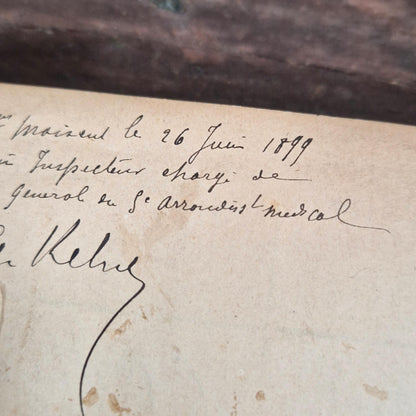 moisent le 26 Juin 1899
Inspecteur chargé de
General du 5e arrondist medical